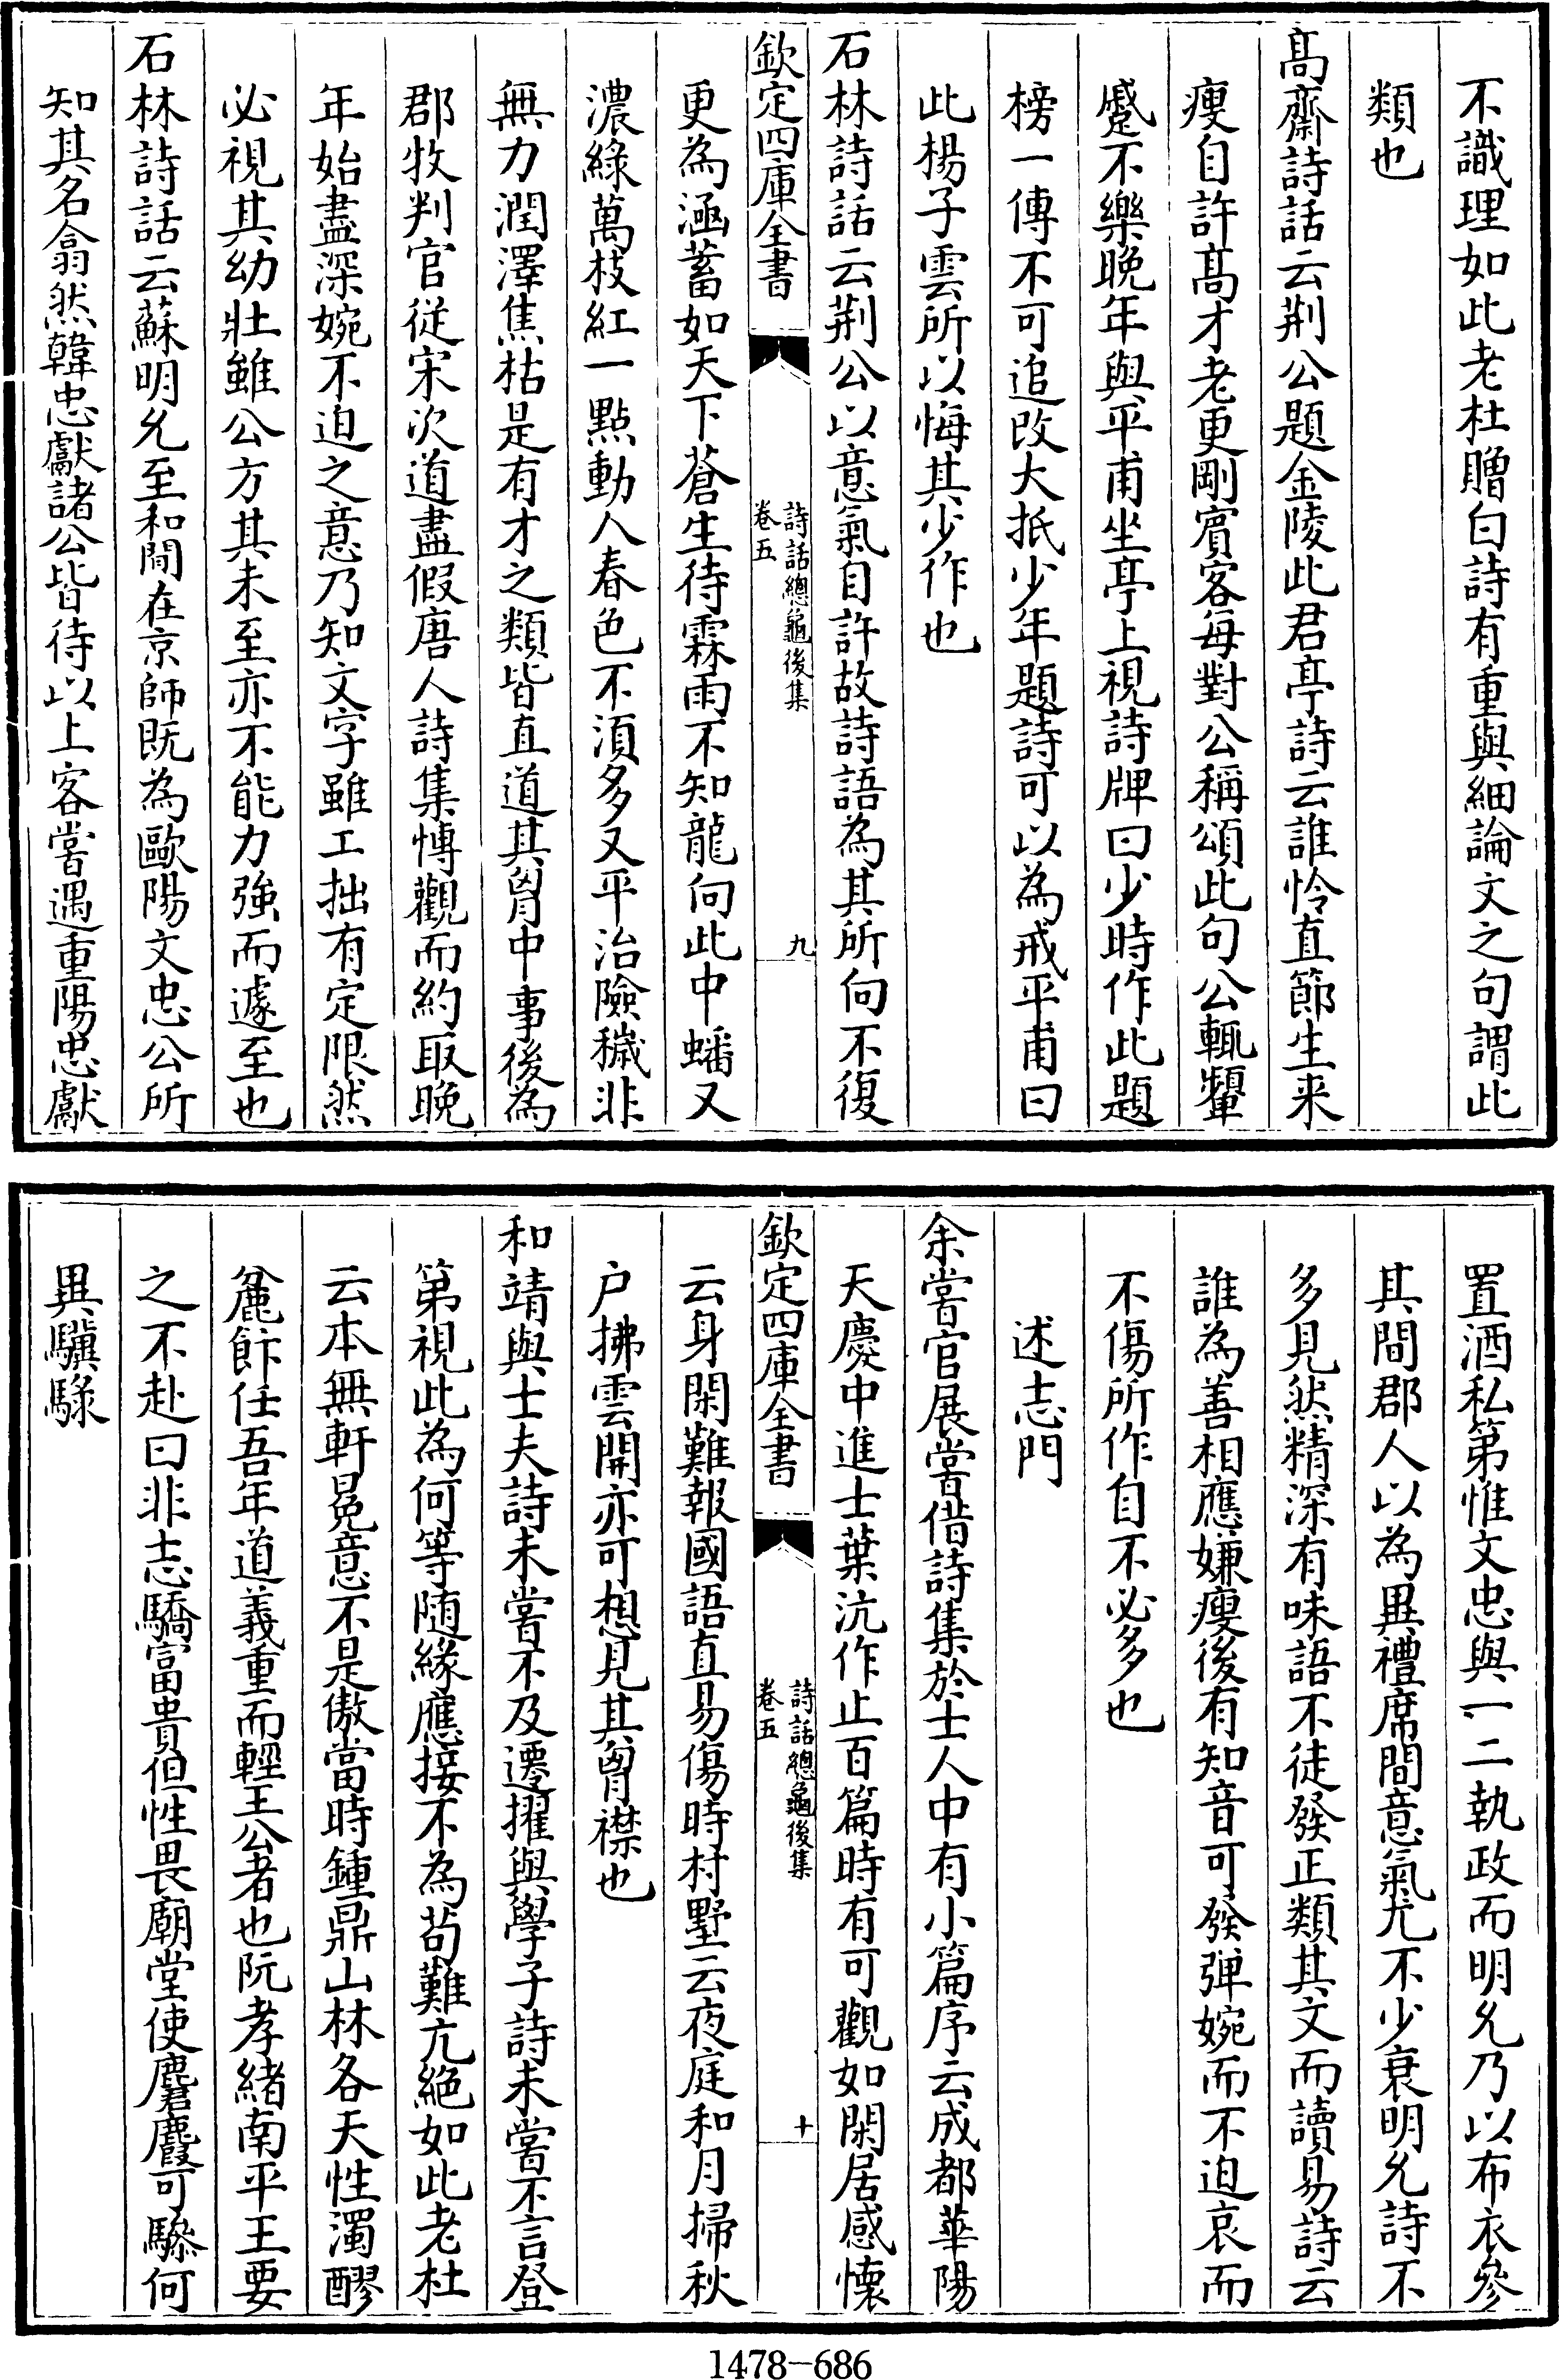 不識理如此老杜贈白詩有重與細論文之句謂此
類也
髙齋詩話云荆公題金陵此君亭詩云誰怜直節生来
瘦自許髙才老更剛賓客毎對公稱頌此句公輒顰
蹙不樂晚年與平甫坐亭上視詩牌曰少時作此題
榜一傳不可追改大抵少年題詩可以為戒平甫曰
此楊子雲所以悔其少作也
石林詩話云荆公以意氣自許故詩語為其所向不復
欽定四庫全書
詩話總龜後集
卷五
九
更為涵蓄如天下蒼生待霖雨不知龍向此中蟠又
濃綠萬枝紅一點動人春色不湏多又平治險穢非
無力潤澤焦枯是有才之類皆直道其胷中事後為
郡牧判官從宋次道盡假唐人詩集博觀而約取晚
年始盡深婉不迫之意乃知文字雖工拙有定限然
必視其幼壯雖公方其未至亦不能力強而遽至也
石林詩話云蘇明允至和間在京師既為歐陽文忠公所
知其名翕然韓忠獻諸公皆待以上客嘗遇重陽忠獻
置酒私第惟文忠與一二執政而明允乃以布衣參
其間郡人以為異禮席間意氣尤不少衰明允詩不
多見然精深有味語不徒發正類其文而讀易詩云
誰為善相應嫌瘦後有知音可發彈婉而不迫哀而
不傷所作自不必多也
述志門
余嘗官展嘗借詩集於士人中有小篇序云成都華陽
天慶中進士葉沆作止百篇時有可觀如閑居感懷
欽定四庫全書
詩話總龜後集
卷五
十
云身閑難報國語直易傷時村墅云夜庭和月掃秋
户拂雲開亦可想見其胷襟也
和靖與士夫詩未嘗不及遷擢與學子詩未嘗不言登
第視此為何等随緣應接不為茍難亢絶如此老杜
云本無軒冕意不是傲當時鍾鼎山林各天性濁醪
麄飰任吾年道義重而輕王公者也阮孝緒南平王要
之不赴曰非志驕富貴但性畏廟堂使麏麚可驂何
異驥騄
1478-686